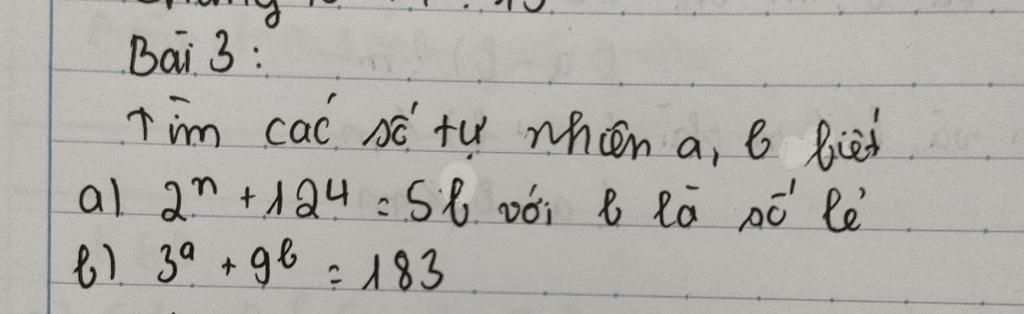 Bài 3:
Tìm các số tự nhiên a, b biết
a) 2ⁿ + 124 = 5b với b là số lẻ
b) 3ᵃ + 9ᵇ = 183